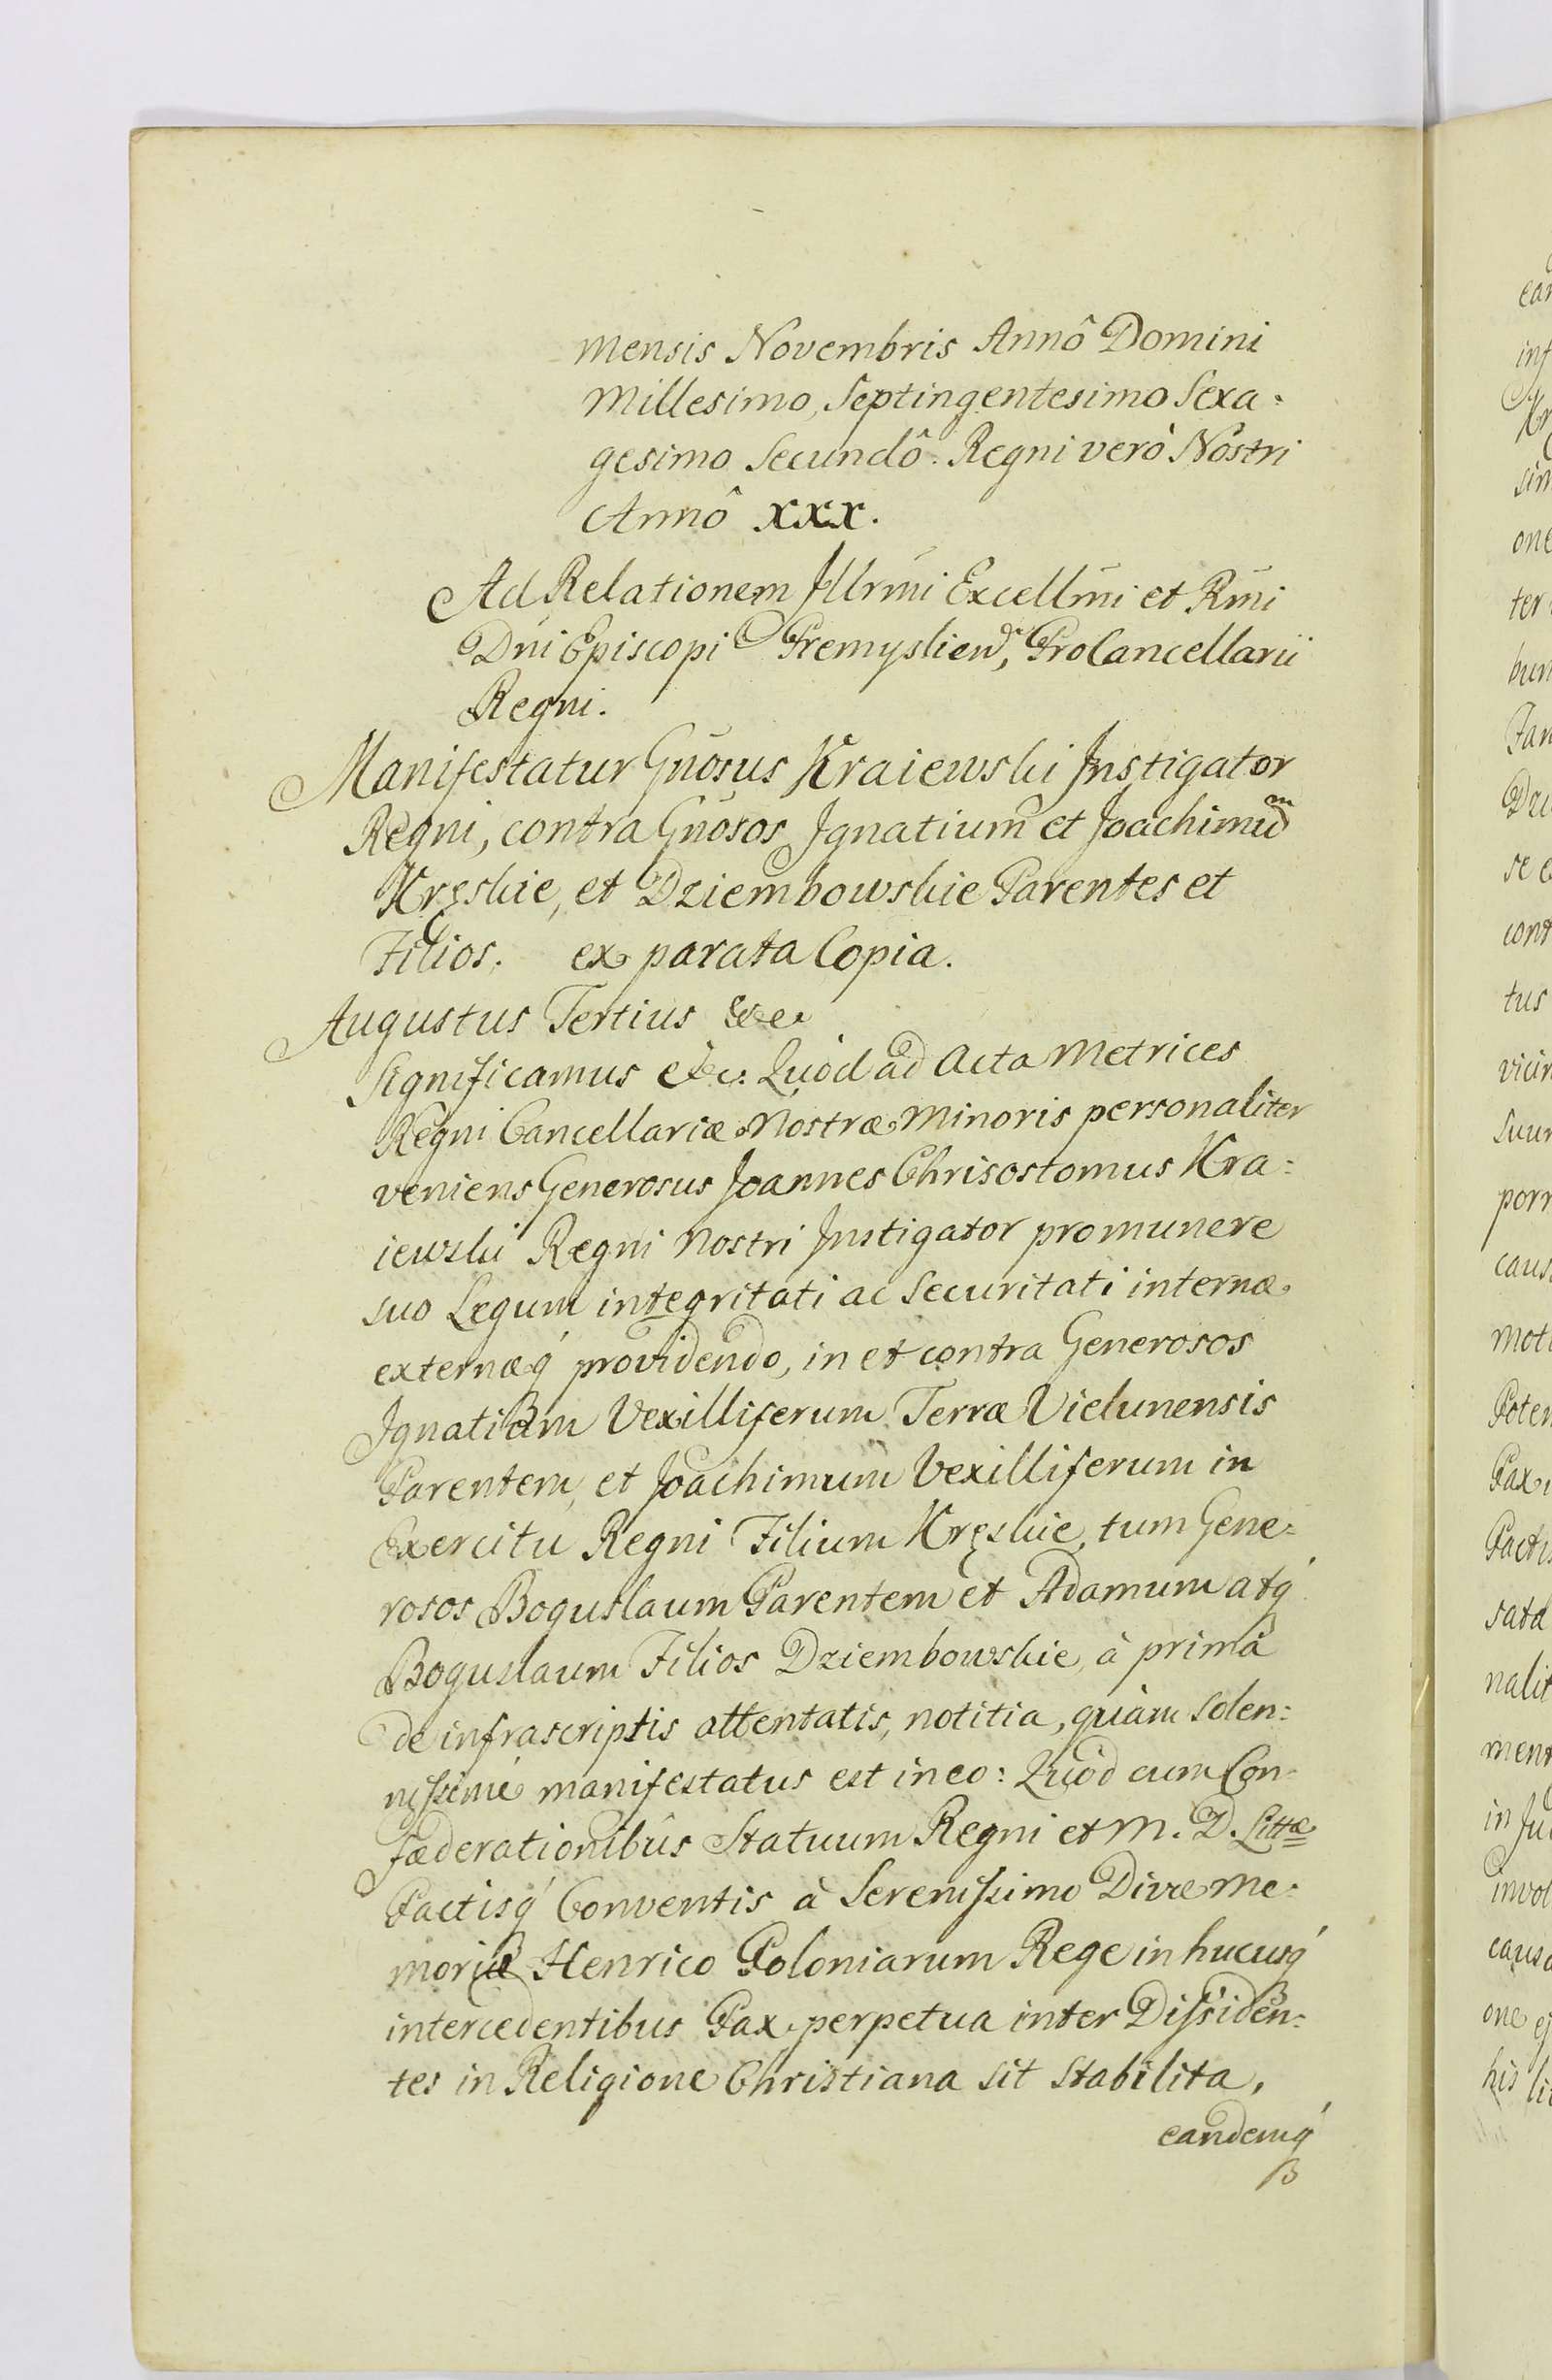 mensis Novembris Annô Domini
Millesimo, Septingentesimo Sexa:
gesimo Secundô. Regni verò Nostri
Annô XXX.
Ad Relationem Jllrm̃i Excellm̃i et Rm̃i
Dñi Episcopi Premyslien, ProCancellarii
Regni.
Manifestatur Gñosus Kraiewski Jnstigator
Regni, contra Gñosos Jgnatium et Joachimum
Kręskie, et Dziembowskie Parentes et
Filios. ex parata Copia.
Augustus Tertius &c
Significamus &c: Quod ad Acta Metrices
Regni Cancellariæ Nostræ Minoris personaliter
veniens Generosus Joannes Chrisostomus Kra:
iewski Regni Nostri Jnstigator pro munere
suo Legum integritati ac Securitati internæ
externæq́ providendo, in et contra Generosos
Jgnatium Vexilliferum Terræ Vielunensis
Parentem, et Joachimum Vexilliferum in
Exercitu Regni Filium Kręskie, tum Gene:
rosos Boguslaum Parentem et Adamum atq́
Boguslaum Filios Dziembowskie, à primâ
de infrascriptis attentatis, notitia, quàm Solen:
nissimé manifestatus est in eo: Quòd cum Con:
fæderationibûs Statuum Regni et M. D. Littæ
Pactisq́ Conventis à Serenissimo Divæ Me:
moriæ Henrico Poloniarum Rege in hucusq́
intercedentibus Pax perpetua inter Dissiden:
tes in Religione Christiana sit Stabilita,
eandemq́
B